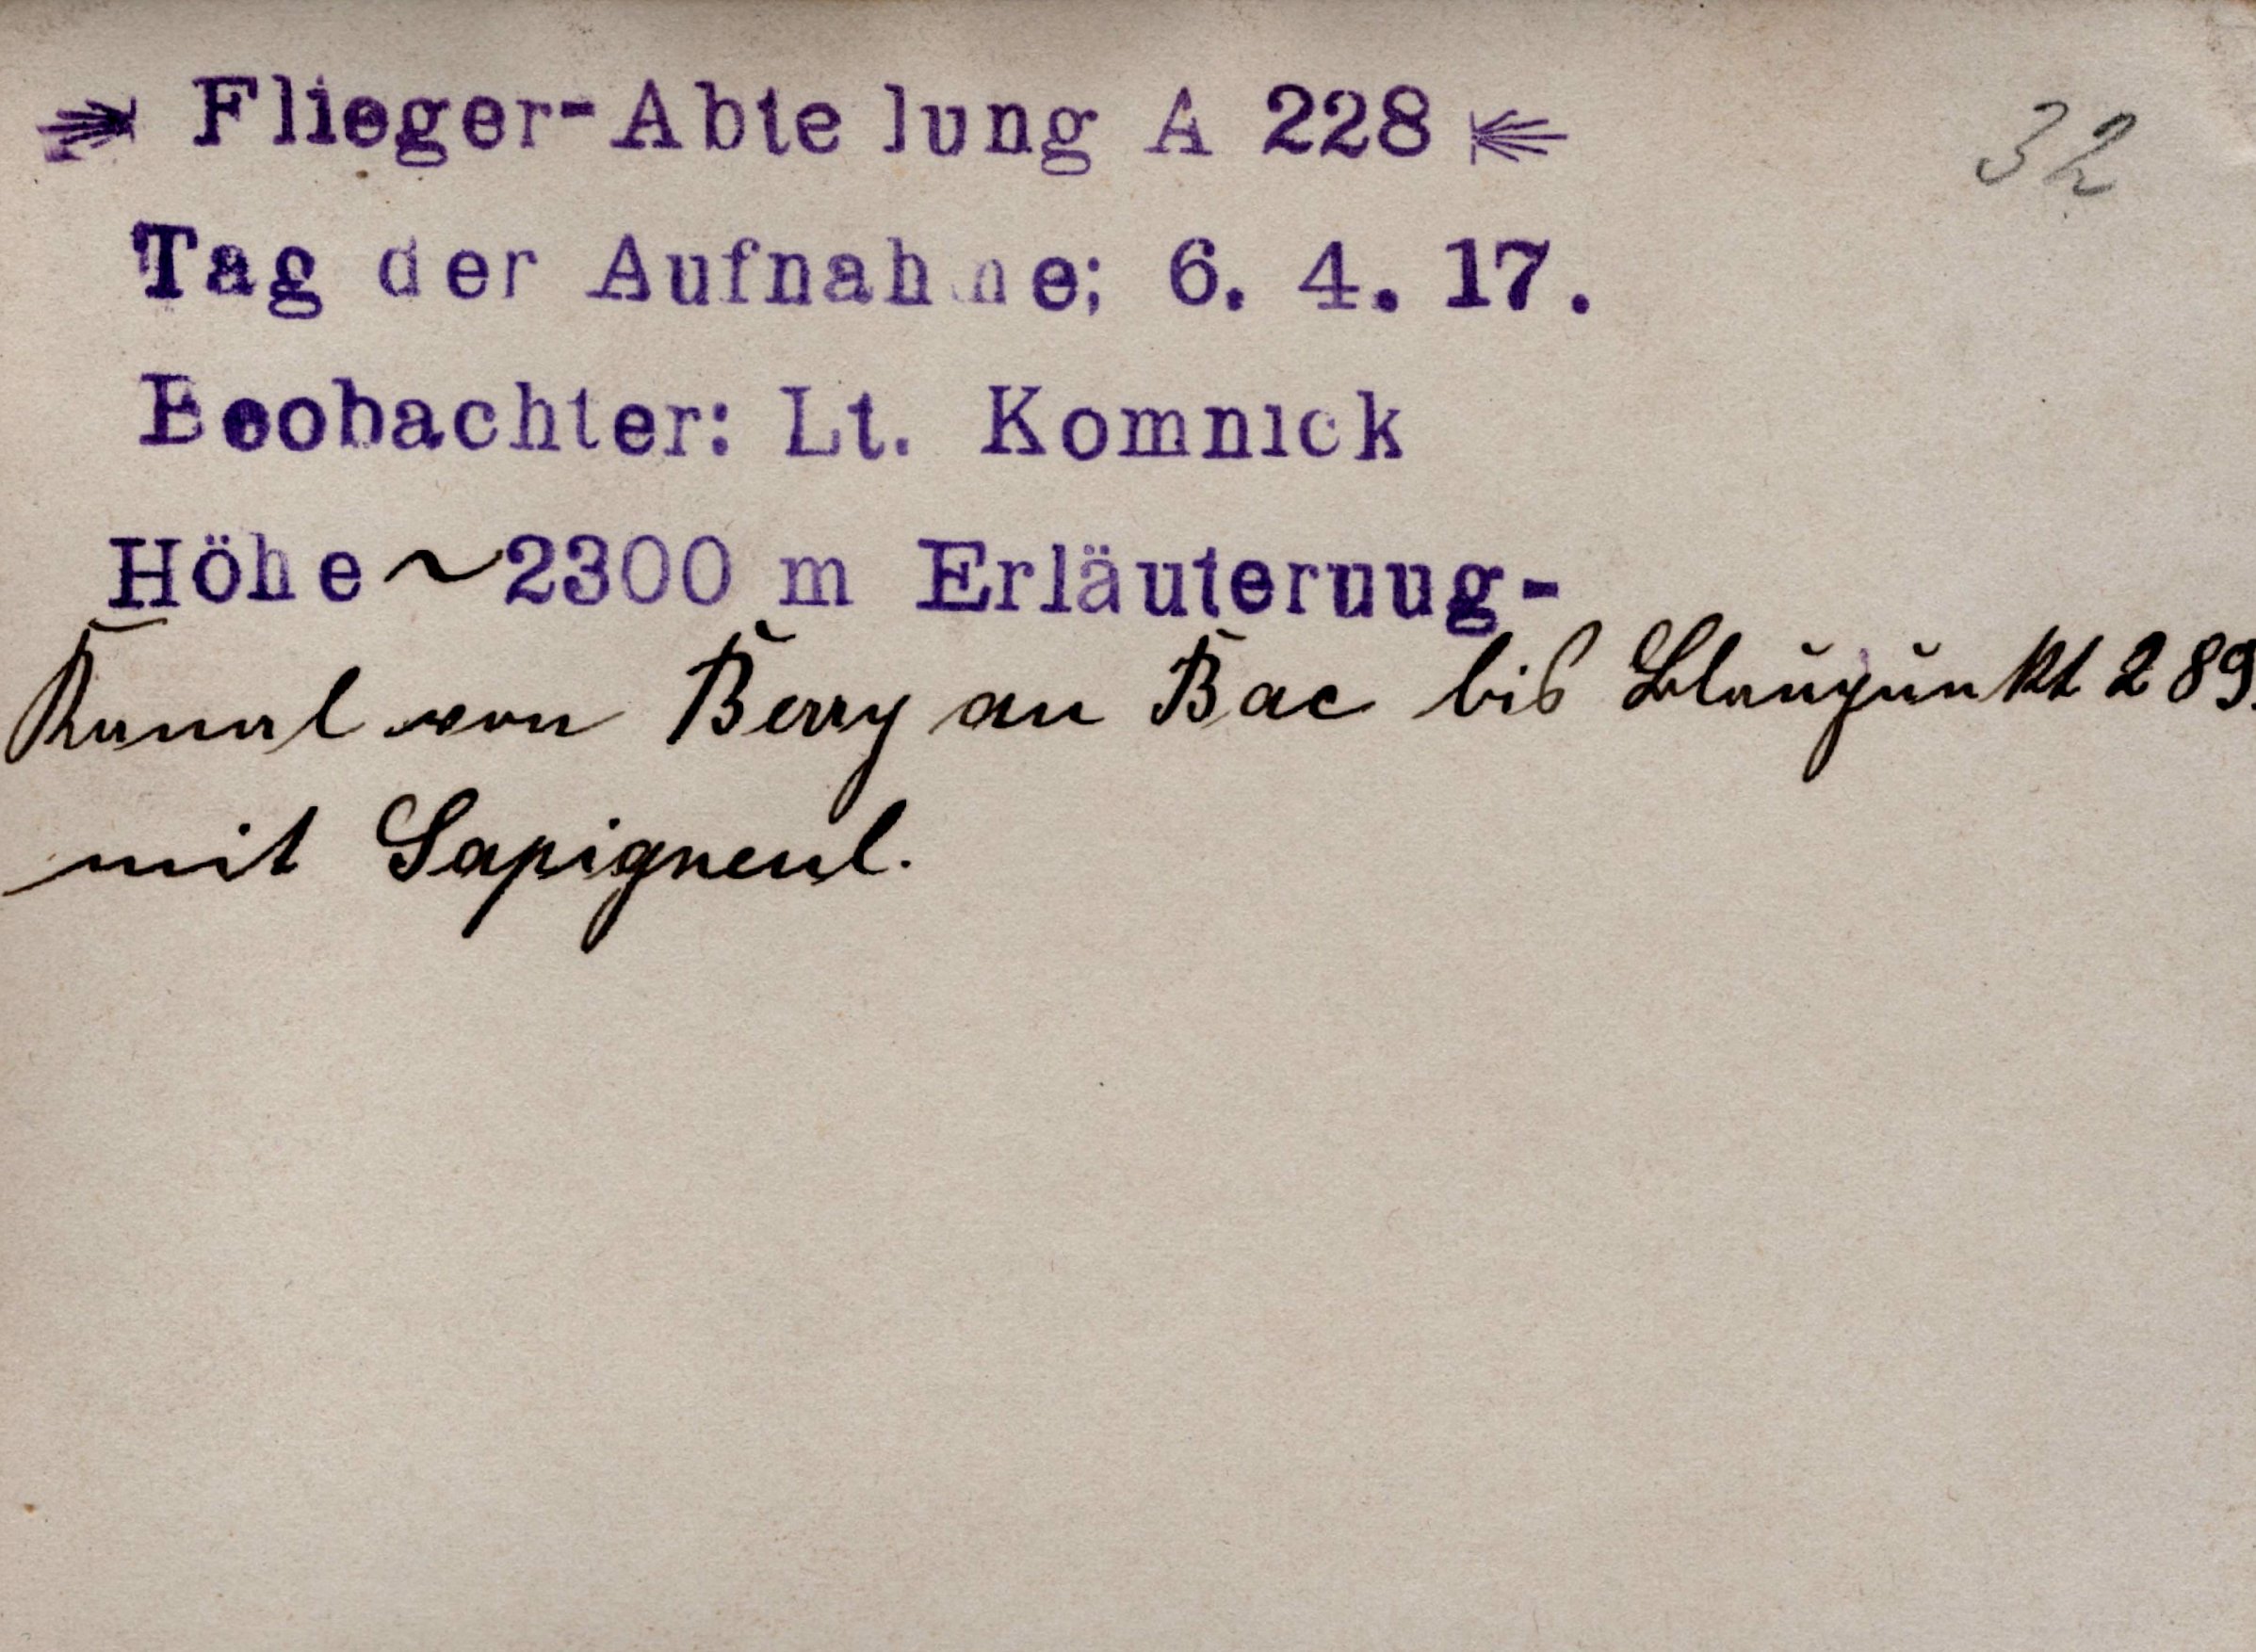 Flieger-Abte lung A 228
32
Tag der Aufnahme; 6. 4. 17.
Beobachter: Lt. Komnick
Höhe ~ 2300 m Erläuteruug-
Kanal von Berry au Bac bis Blaupunkt 289.
mit Sapigneul.